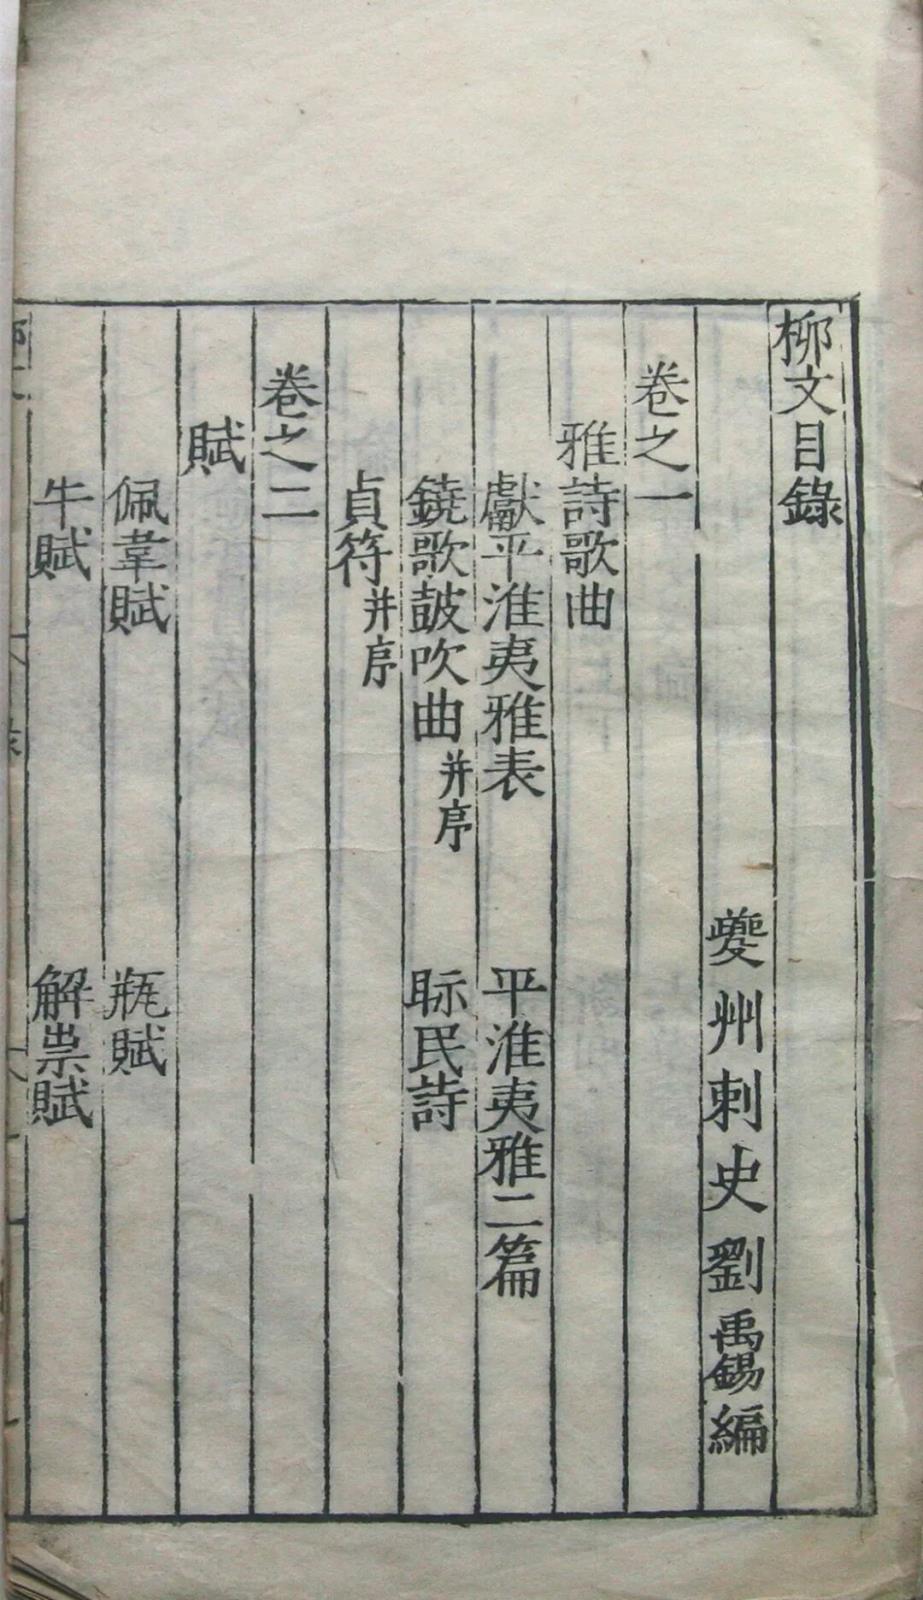 柳文目錄
夔州刺史劉禹錫編
卷之一
雅詩歌曲
獻平淮夷雅表 平淮夷雅二篇
鐃歌鼓吹曲并序 眎民詩
貞符并序
卷之二
賦
佩韋賦 瓶賦
牛賦 解祟賦